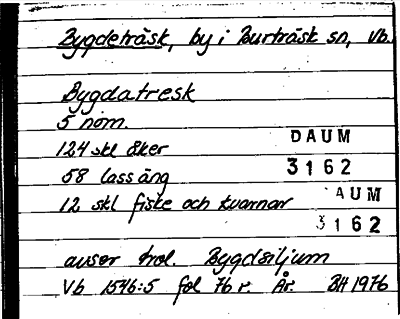 Bygdeträsk, by i Burträsk sn, Vb.
Bygdatresk
5 nom.
124 skl åker
58 lass äng
12 skl fiske och kvarnar
DAUM
3162
AUM
3162
avser trol. Bygdsiljum
Vb 1546:5 fol 76 r. År. BH 1976